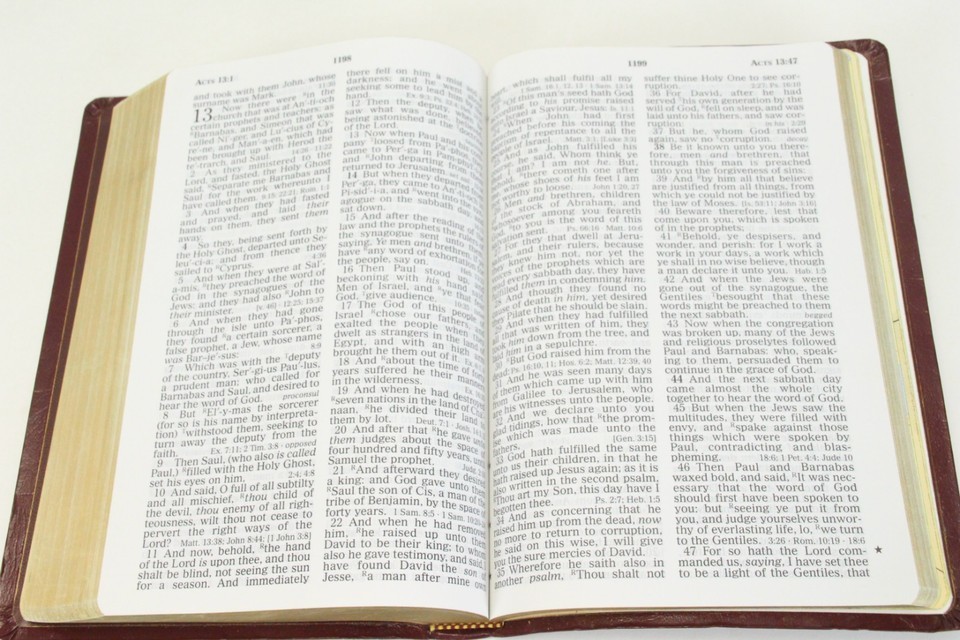 1198
ACTS 13:1
and took with them John, whose
surname was Mark. 11:30
13 Now there were ᴿin the
church that was at An'ti-och
certain prophets and teachers; as
ᴿBarnabas, and Simeon that was
called Ni'ger, and Lu'cius of Cy-
re'ne, and Man'a-en, which had
been brought up with Herod the
te'trarch, and Saul. 14:26 · 11:22
2 As they ministered to the
Lord, and fasted, the Holy Ghost
said, ᴿSeparate me Barnabas and
Saul for the work whereunto I
have called them. 9:15; 22:21; Rom. 1:1
3 And when they had fasted
and prayed, and laid their
hands on them, they sent them
away.
4 So they, being sent forth by
the Holy Ghost, departed unto Se-
leu'ci-a; and from thence they
sailed to ᴿCyprus. 4:36
5 And when they were at Sal'-
a-mis, ᴿthey preached the word of
God in the synagogues of the
Jews: and they had also ᴿJohn to
their minister. [v. 46] · 12:25; 15:37
6 And when they had gone
through the isle unto Pa'phos,
they found ᴿa certain sorcerer, a
false prophet, a Jew, whose name
was Bar–je'-sus: 8:9
7 Which was with the ᵀdeputy
of the country, Ser'gi-us Pau'lus,
a prudent man; who called for
Barnabas and Saul, and desired to
hear the word of God. proconsul
8 But ᴿEl'-y-mas the sorcerer
(for so is his name by interpreta-
tion) ᵀwithstood them, seeking to
turn away the deputy from the
faith. Ex. 7:11; 2 Tim. 3:8 · opposed
9 Then Saul, (who also is called
Paul,) ᴿfilled with the Holy Ghost,
set his eyes on him. 2:4; 4:8
10 And said, O full of all subtilty
and all mischief, ᴿthou child of
the devil, thou enemy of all righ-
teousness, wilt thou not cease to
pervert the right ways of the
Lord? Matt. 13:38; John 8:44; [1 John 3:8]
11 And now, behold, ᴿthe hand
of the Lord is upon thee, and thou
shalt be blind, not seeing the sun
for a season. And immediately
there fell on him a mist and a
darkness; and he went
seeking some to lead him by the
hand.
12 Then the deputy, when he
saw what was done,
being astonished at the doctrine
of the Lord.
13 Now when Paul and his com-
pany ᵀloosed from Pa'phos, they
came to Per'ga in Pam-phyl
and ᴿJohn departing from
returned to Jerusalem.
14 But when they departed
Per'ga, they came to An'ti-och
Pi-sid'-i-a, and ᴿwent into the syn-
agogue on the sabbath day, and
sat down.
15 And after the reading of the
law and the prophets the rulers of
the synagogue sent unto them,
saying, Ye men and brethren,
have ᴿany word of exhortation for
the people, say on.
16 Then Paul stood up, and
beckoning with his hand
Men of Israel, and ᴿye that fear
God, ᵀgive audience.
17 The God of this people of
Israel ᴿchose our fathers, and
exalted the people when they
dwelt as strangers in the land of
Egypt, and with an high arm
brought he them out of it.
18 And ᴿabout the time of forty
years suffered he their manners
in the wilderness.
19 And when he had destroyed
ᴿseven nations in the land of Cha-
naan, ᴿhe divided their land to
them by lot. Deut. 7:1 · Josh.
20 And after that ᴿhe gave unto
them judges about the space of
four hundred and fifty years, until
Samuel the prophet. Judg.
21 ᴿAnd afterward they desired
a king: and God gave unto them
ᴿSaul the son of Cis, a man of the
tribe of Benjamin, by the space of
forty years. 1 Sam. 8:5 · 1 Sam. 10:21
22 And when he had removed
him, ᴿhe raised up unto them
David to be their king; to whom
also he gave testimony, and said, I
have found David the son of
Jesse, ᴿa man after mine own
1199
ACTS 13:47
heart, which shall fulfil all my
1 Sam. 16:1, 12, 13 · 1 Sam. 13:14
ᴿOf this man's seed hath God
according to his promise raised
Israel a Saviour, Jesus: Is. 11:1
ᴿWhen John had first
preached before his coming the
of repentance to all the
people of Israel. Matt. 3:1; [Luke 3:3]
And as John fulfilled his
he said, Whom think ye
that I am? I am not he. But,
there cometh one after
whose shoes of his feet I am
worthy to loose. John 1:20, 27
Men and brethren, children
of the stock of Abraham, and
whosoever among you feareth
to you is the word of this
sent. Ps. 66:16 · Matt. 10:6
For they that dwell at Jeru-
salem, and their rulers, because
they knew him not, nor yet the
voices of the prophets which are
read every sabbath day, they have
fulfilled them in condemning him.
And though they found no
cause of death in him, yet desired
they Pilate that he should be slain.
And when they had fulfilled
all that was written of him, they
took him down from the tree, and
laid him in a sepulchre.
30 ᴿBut God raised him from the
dead: Ps. 16:10, 11; Hos. 6:2; Matt. 12:39, 40
And he was seen many days
of them which came up with him
from Galilee to Jerusalem, who
are his witnesses unto the people.
32 And we declare unto you
glad tidings, how that ᴿthe prom-
ise which was made unto the
fathers, [Gen. 3:15]
33 God hath fulfilled the same
unto us their children, in that he
hath raised up Jesus again; as it is
also written in the second psalm,
Thou art my Son, this day have I
begotten thee. Ps. 2:7; Heb. 1:5
34 And as concerning that he
raised him up from the dead, now
no more to return to corruption,
he said on this wise, I will give
you the sure mercies of David.
35 Wherefore he saith also in
another psalm, ᴿThou shalt not
suffer thine Holy One to see cor-
ruption. 2:27; Ps. 16:10
36 For David, after he had
served ᵀhis own generation by the
will of God, ᴿfell on sleep, and was
laid unto his fathers, and saw cor-
ruption: in his · 2:29
37 But he, whom God raised
again, saw no ᵀcorruption. decay
38 Be it known unto you there-
fore, men and brethren, that
through this man is preached
unto you the forgiveness of sins:
39 And ᴿby him all that believe
are justified from all things, from
which ye could not be justified by
the law of Moses. [Is. 53:11; John 3:16]
40 Beware therefore, lest that
come upon you, which is spoken
of in the prophets;
41 ᴿBehold, ye despisers, and
wonder, and perish: for I work a
work in your days, a work which
ye shall in no wise believe, though
a man declare it unto you. Hab. 1:5
42 And when the Jews were
gone out of the synagogue, the
Gentiles ᵀbesought that these
words might be preached to them
the next sabbath. begged
43 Now when the congregation
was broken up, many of the Jews
and religious proselytes followed
Paul and Barnabas: who, speak-
ing to them, persuaded them to
continue in the grace of God.
44 And the next sabbath day
came almost the whole city
together to hear the word of God.
45 But when the Jews saw the
multitudes, they were filled with
envy, and ᴿspake against those
things which were spoken by
Paul, contradicting and blas-
pheming. 18:6; 1 Pet. 4:4; Jude 10
46 Then Paul and Barnabas
waxed bold, and said, ᴿIt was nec-
essary that the word of God
should first have been spoken to
you: but ᴿseeing ye put it from
you, and judge yourselves unwor-
thy of everlasting life, lo, ᴿwe turn
to the Gentiles. 3:26 · Rom. 10:19 · 18:6
47 For so hath the Lord com- ★
manded us, saying, I have set thee
to be a light of the Gentiles, that